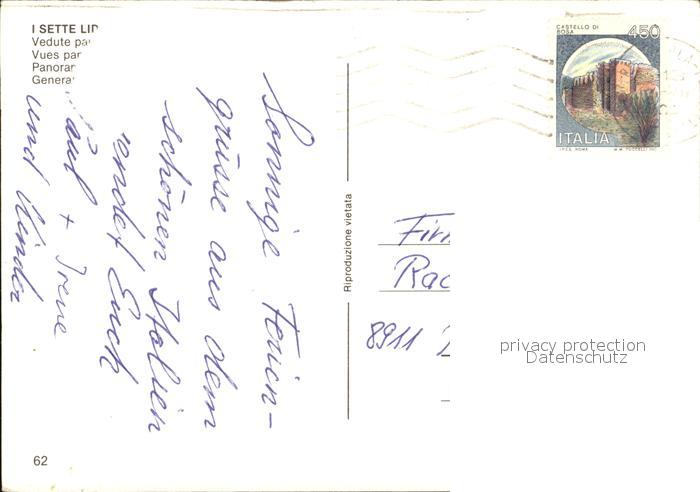 I SETTE LID
Vedute pa
Vues par
Panorar
Genera
Sonnige Ferien-
grüsse aus dem
schönen Italien
sendet Euch
Paul + Irene
und Kinder
62
Riproduzione vietata
CASTELLO DI
BOSA
450
ITALIA
I.P.Z.S. ROMA
Fir
Rac
8911
privacy protection
Datenschutz